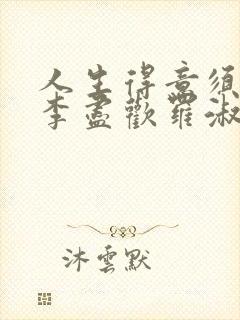 人生得意須
李盡歡羅淑
沐雲默